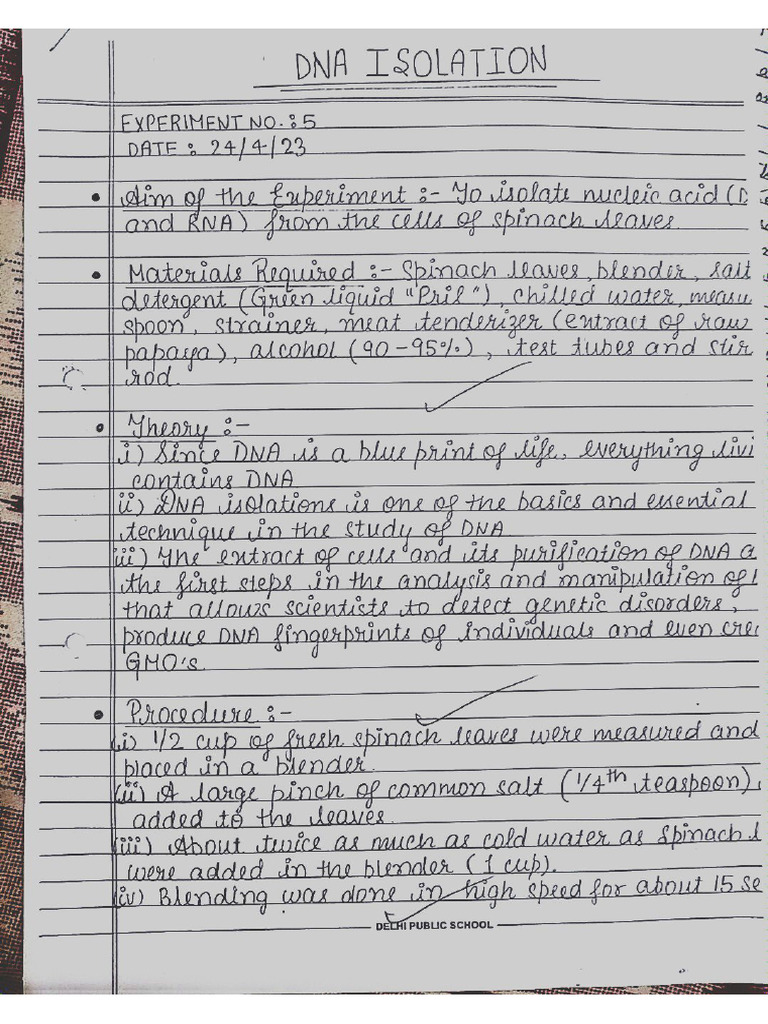 DNA ISOLATION
EXPERIMENT NO.: 5
DATE : 24/4/23
• Aim of the Experiment :- To isolate nucleic acid (D
and RNA) from the cells of spinach leaves.
• Materials Required :- Spinach leaves, blender, salt
detergent (Green liquid "Pril"), chilled water, measu
spoon, strainer, meat tenderizer (extract of raw
papaya), alcohol (90-95%), test tubes and stir
rod.
• Theory :-
i) Since DNA is a blue print of life, everything livi
contains DNA
ii) DNA isolations is one of the basics and essential
technique in the study of DNA
iii) The extract of cells and its purification of DNA a
the first steps in the analysis and manipulation of
that allows scientists to detect genetic disorders,
produce DNA fingerprints of individuals and even cre
GMO's.
• Procedure :-
(i) 1/2 cup of fresh spinach leaves were measured and
placed in a blender
(ii) A large pinch of common salt (1/4th teaspoon)
added to the leaves.
(iii) About twice as much as cold water as spinach l
were added in the blender (1 cup).
(iv) Blending was done in high speed for about 15 se
DELHI PUBLIC SCHOOL